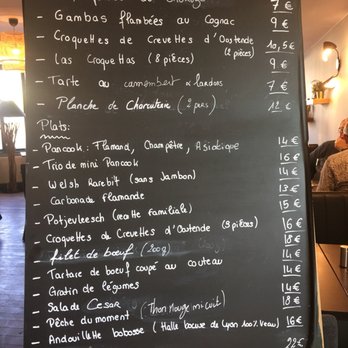 7€
- Gambas flambées au Cognac 9€
- Croquettes de Crevettes d'Ostende (2 pièces) 10,5€
- Las Croquettas (8 pièces) 9€
- Tarte au camembert & lardons 7€
- Planche de Charcuterie (2 pers) 12€
Plats:
- Pancook: Flamand, Champêtre, Asiatique 14€
- Trio de mini Pancook 16€
- Welsh Rarebit (sans Jambon) 14€
- Carbonade Flamande 13€
- Potjevleesch (recette familiale) 15€
- Croquettes de Crevettes d'Oostende (3 pièces) 16€
- filet de bœuf (200g) 18€
- Tartare de bœuf coupé au couteau 14€
- Gratin de légumes 14€
- Salade Cesar 14€
- Pêche du moment (Thon Rouge mi cuit) 18€
- Andouillette bobosse (Halle bocuse de Lyon 100% Veau) 16€
22€